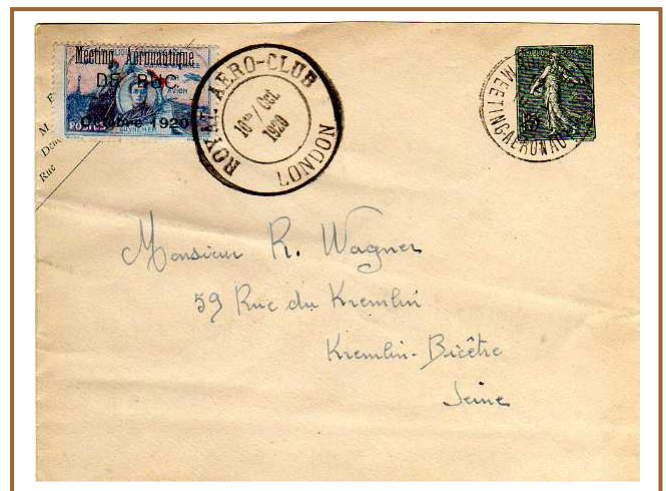 Meeting Aéronautique
DE BUC
Octobre 1920
POSTES
ROYAL AERO-CLUB
10 / Oct.
1920
LONDON
MEETING AERONAU
M.
Rue
Monsieur R. Wagner
59 Rue du Kremlin
Kremlin-Bicêtre
Seine